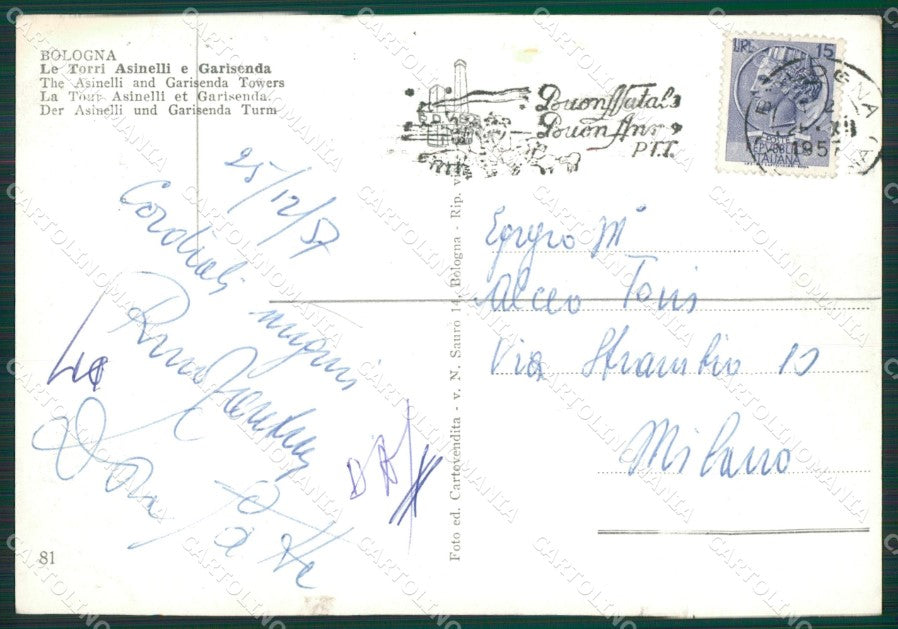 BOLOGNA
Le Torri Asinelli e Garisenda
The Asinelli and Garisenda Towers
La Tour Asinelli et Garisenda.
Der Asinelli und Garisenda Turm
LIRE 15
REPUBBLICA
ITALIANA
Buon Natale
Buon Anno
P.T.T.
1957
25/12/57
Cordiali
auguri
Dora
Egregio M°
Alceo Toni
Via Strambio 10
Milano
Foto ed. Cartovendita - v. N. Sauro 14, Bologna - Rip. v
81
CARTOLINOMANIA